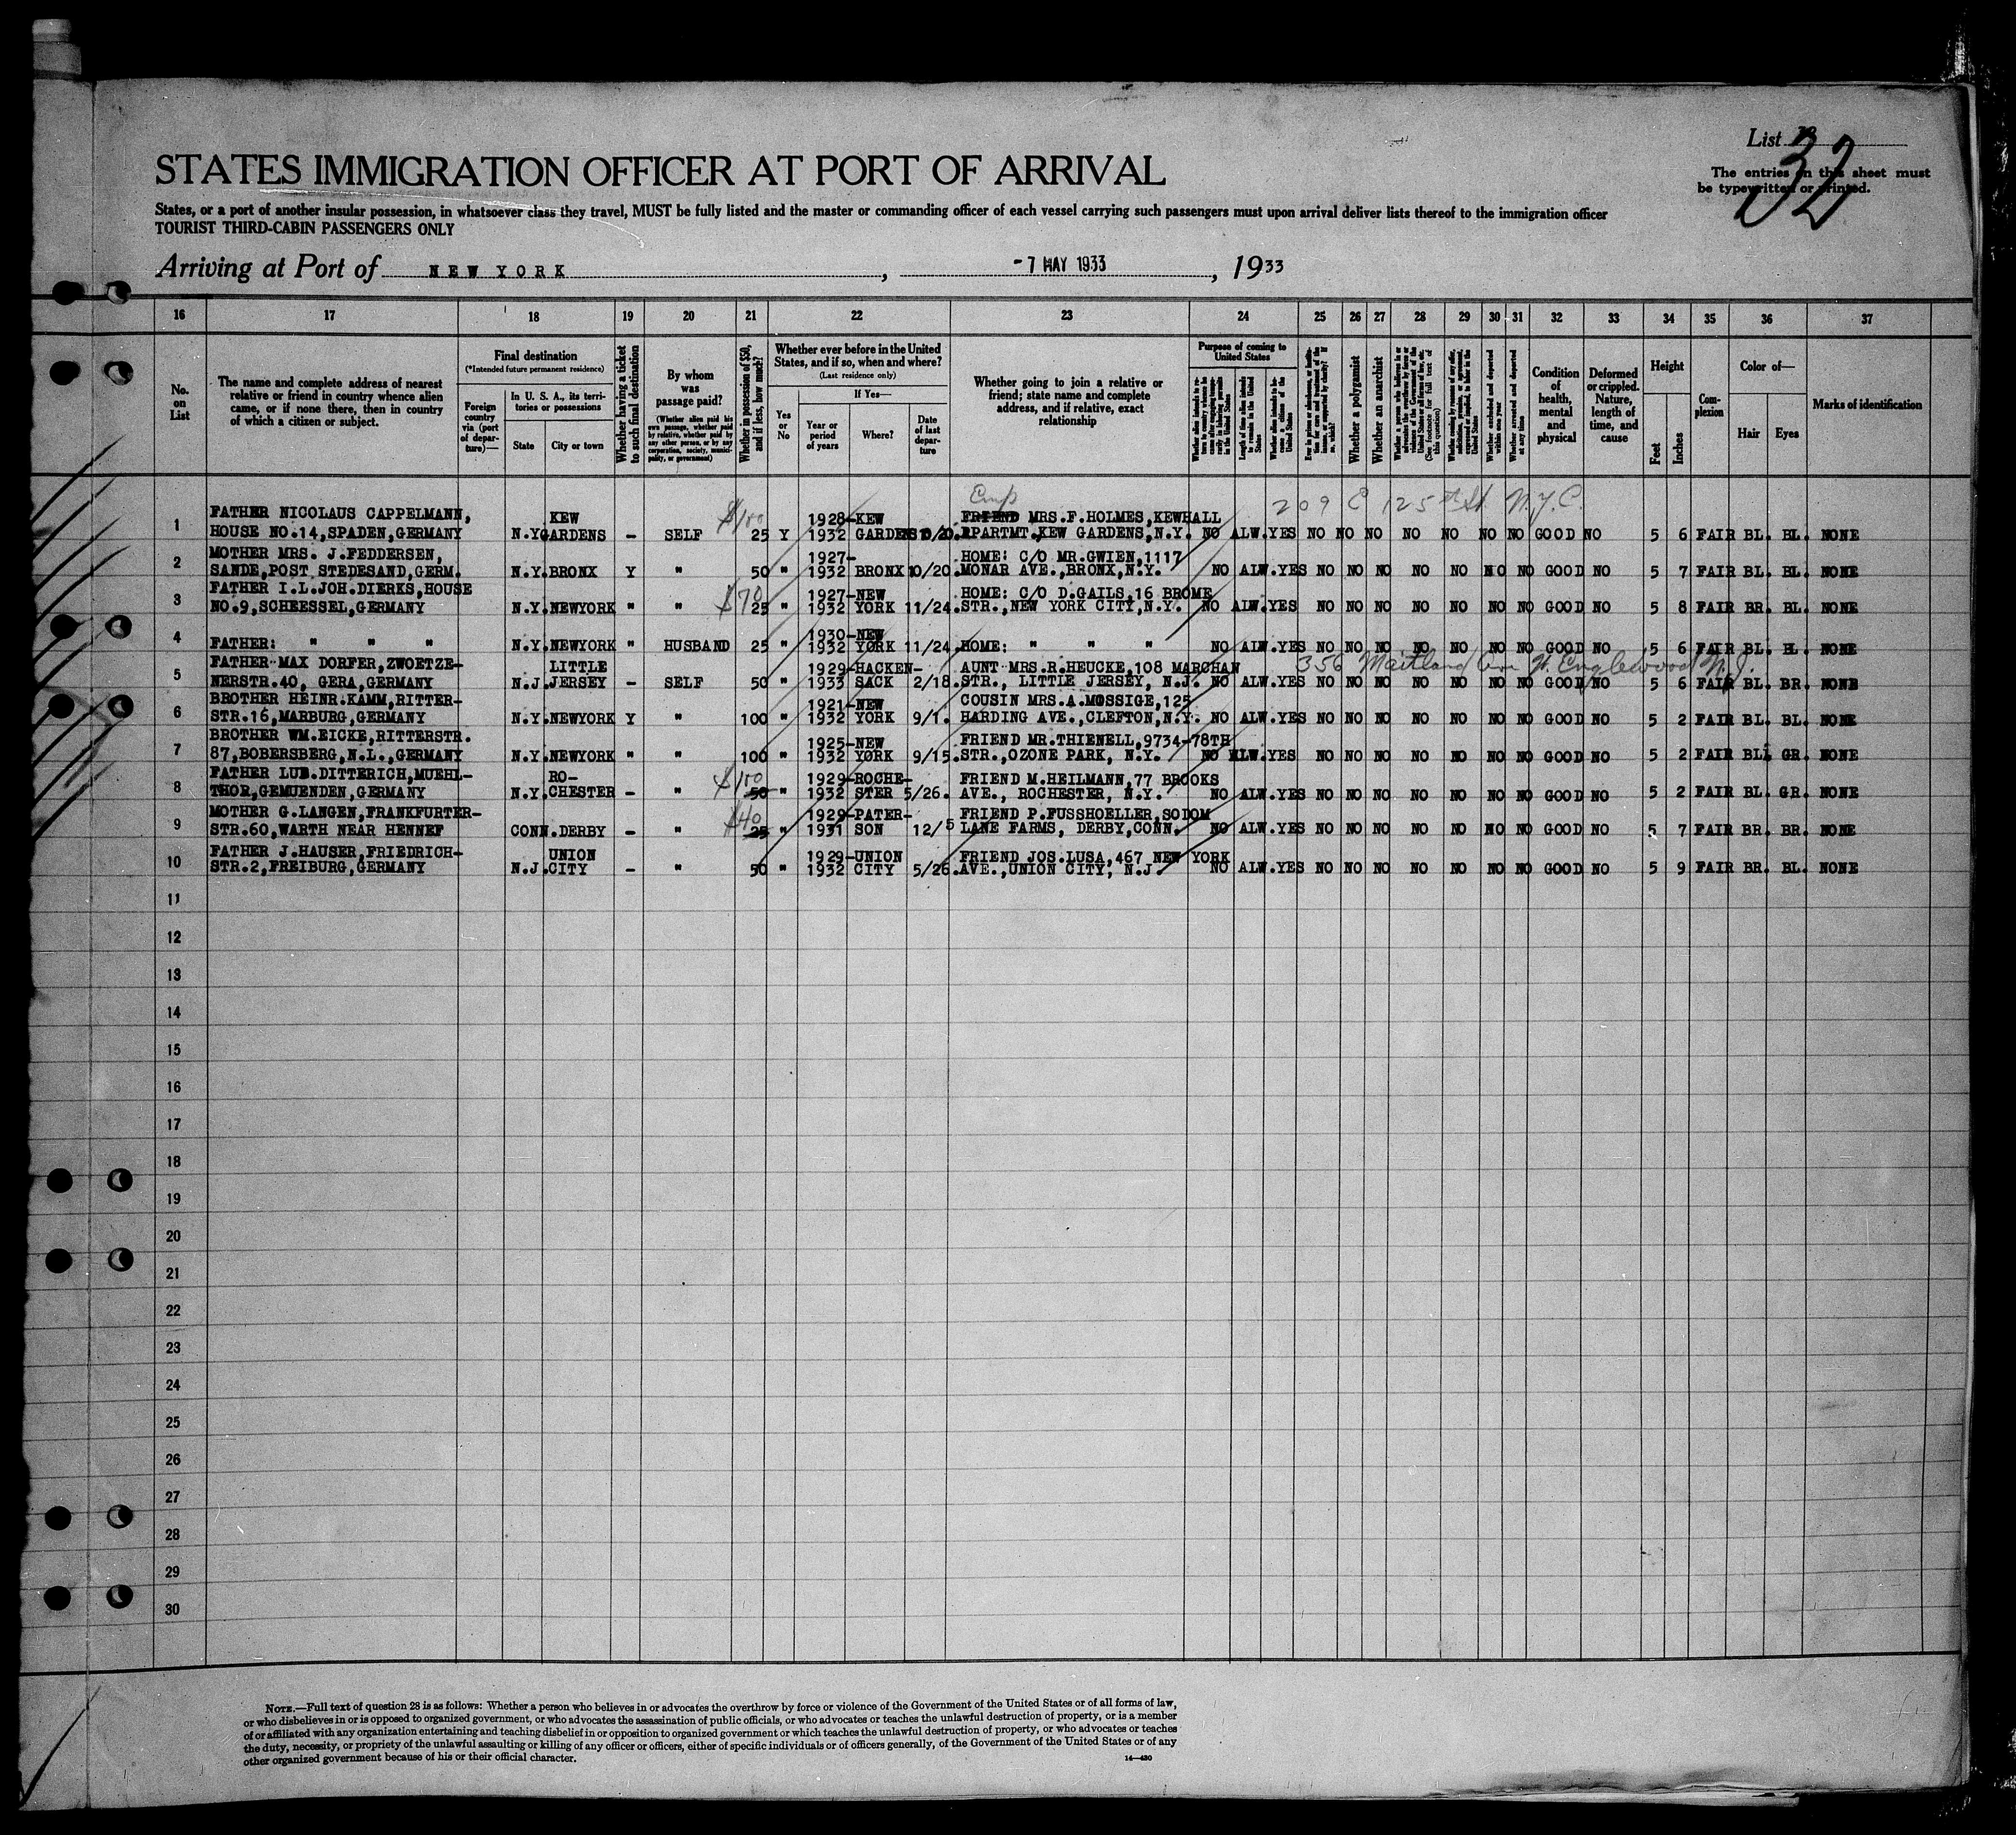 List
32
The entries on this sheet must
be typewritten or printed.
STATES IMMIGRATION OFFICER AT PORT OF ARRIVAL
States, or a port of another insular possession, in whatsoever class they travel, MUST be fully listed and the master or commanding officer of each vessel carrying such passengers must upon arrival deliver lists thereof to the immigration officer
TOURIST THIRD-CABIN PASSENGERS ONLY
Arriving at Port of NEW YORK, -7 MAY 1933, 1933
16 17 18 19 20 21 22 23 24 25 26 27 28 29 30 31 32 33 34 35 36 37
No. on List
The name and complete address of nearest
relative or friend in country whence alien
came, or if none there, then in country
of which a citizen or subject.
Final destination
(*Intended future permanent residence)
Foreign country via (port of departure)—
In U. S. A., its territories or possessions
State
City or town
Whether having a ticket to such final destination
By whom was passage paid?
(Whether alien paid his own passage, whether paid by relative, whether paid by any other person, or by any corporation, society, municipality, or government)
Whether in possession of $50, and if less, how much?
Whether ever before in the United States, and if so, when and where?
(Last residence only)
Yes or No
If Yes—
Year or period of years
Where?
Date of last departure
Whether going to join a relative or
friend; state name and complete
address, and if relative, exact
relationship
Purpose of coming to United States
Length of time alien intends to remain in the United States
Whether alien intends to become a citizen of the United States
Whether a polygamist
Whether an anarchist
(See footnote for full text of this question)
Whether arrested and deported at any time
Condition of health, mental and physical
Deformed or crippled. Nature, length of time, and cause
Height
Feet
Inches
Complexion
Color of—
Hair
Eyes
Marks of identification
Emp 209 E 125th St N.Y.C.
1 FATHER NICOLAUS CAPPELMANN, KEW $100 1928-KEW FRIEND MRS.F.HOLMES,KEWHALL
HOUSE NO.14,SPADEN,GERMANY N.Y. GARDENS – SELF 25 Y 1932 GARDENS 8/20. APARTMT.KEW GARDENS,N.Y. NO ALW. YES NO NO NO NO NO NO NO GOOD NO 5 6 FAIR BL. BL. NONE
2 MOTHER MRS. J.FEDDERSEN, 1927- HOME: C/O MR.GWIEN,1117
SANDE,POST STEDESAND,GERM. N.Y. BRONX Y " 50 " 1932 BRONX 10/20. MONAR AVE.,BRONX,N.Y. NO ALW. YES NO NO NO NO NO NO NO GOOD NO 5 7 FAIR BL. BL. NONE
3 FATHER I.L.JOH.DIERKS,HOUSE $70 1927-NEW HOME: C/O D.GAILS,16 BROME
NO.9,SCHEESSEL,GERMANY N.Y. NEWYORK " " 25 " 1932 YORK 11/24. STR.,NEW YORK CITY,N.Y. NO ALW. YES NO NO NO NO NO NO NO GOOD NO 5 8 FAIR BR. BL. NONE
4 1930-NEW
FATHER: " " " N.Y. NEWYORK " HUSBAND 25 " 1932 YORK 11/24. HOME: " " " NO ALW. YES NO NO NO NO NO NO NO GOOD NO 5 6 FAIR BL. BL. NONE
5 FATHER MAX DORFER,ZWOETZE- LITTLE 1929-HACKEN- AUNT MRS.R.HEUCKE,108 MARCHAN 356 Maitland Ave W. Englewood N.J.
NERSTR.40, GERA,GERMANY N.J. JERSEY – SELF 50 " 1933 SACK 2/18. STR., LITTLE JERSEY, N.J. NO ALW. YES NO NO NO NO NO NO NO GOOD NO 5 6 FAIR BL. BR. NONE
6 BROTHER HEINR.KAMM,RITTER- 1921-NEW COUSIN MRS.A.MOSSIGE,125
STR.16,MARBURG,GERMANY N.Y. NEWYORK Y " 100 " 1932 YORK 9/1. HARDING AVE.,CLEFTON,N.Y. NO ALW. YES NO NO NO NO NO NO NO GOOD NO 5 2 FAIR BL. BL. NONE
7 BROTHER WM.EICKE,RITTERSTR. 1925-NEW FRIEND MR.THIENELL,9734-78TH
87,BOBERSBERG,N.L.,GERMANY N.Y. NEWYORK " " 100 " 1932 YORK 9/15. STR.,OZONE PARK, N.Y. NO ALW. YES NO NO NO NO NO NO NO GOOD NO 5 2 FAIR BL. GR. NONE
8 FATHER LUD.DITTERICH,MUEHL- RO- $100 1929-ROCHE- FRIEND M.HEILMANN,77 BROOKS
THOR,GEMUENDEN,GERMANY N.Y. CHESTER – " 50 " 1932 STER 5/26. AVE., ROCHESTER, N.Y. NO ALW. YES NO NO NO NO NO NO NO GOOD NO 5 2 FAIR BL. GR. NONE
9 MOTHER G.LANGEN,FRANKFURTER- $40 1929-PATER- FRIEND P.FUSSHOELLER,SODOM
STR.60,WARTH NEAR HENNEF CONN. DERBY – " 25 " 1931 SON 12/5 LANE FARMS, DERBY,CONN. NO ALW. YES NO NO NO NO NO NO NO GOOD NO 5 7 FAIR BR. BR. NONE
10 FATHER J.HAUSER,FRIEDRICH- UNION 1929-UNION FRIEND JOS.LUSA,467 NEW YORK
STR.2,FREIBURG,GERMANY N.J. CITY – " 50 " 1932 CITY 5/26. AVE.,UNION CITY, N.J. NO ALW. YES NO NO NO NO NO NO NO GOOD NO 5 9 FAIR BR. BL. NONE
11
12
13
14
15
16
17
18
19
20
21
22
23
24
25
26
27
28
29
30
NOTE.—Full text of question 28 is as follows: Whether a person who believes in or advocates the overthrow by force or violence of the Government of the United States or of all forms of law,
or who disbelieves in or is opposed to organized government, or who advocates the assassination of public officials, or who advocates or teaches the unlawful destruction of property, or is a member
of or affiliated with any organization entertaining and teaching disbelief in or opposition to organized government or which teaches the unlawful destruction of property, or who advocates or teaches
the duty, necessity, or propriety of the unlawful assaulting or killing of any officer or officers, either of specific individuals or of officers generally, of the Government of the United States or of any
other organized government because of his or their official character.
14—430